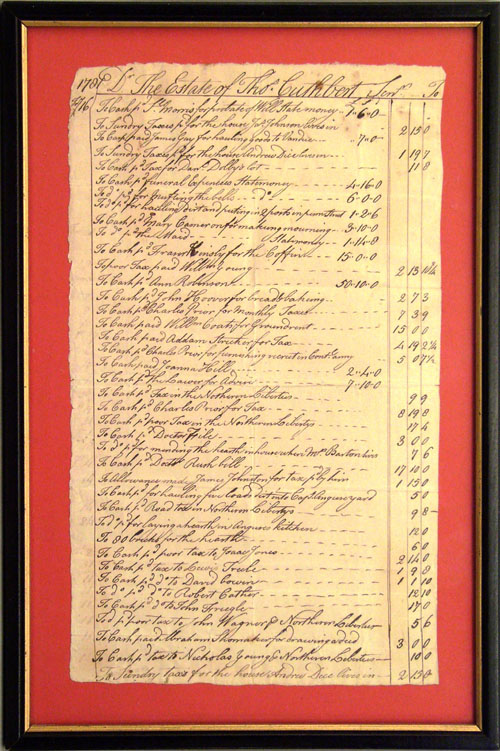 1781 Dr The Estate of Thos. Cuthbert Senr To
To Cash pd Morris for probate of Will State money 1-6-0
To Sundry Taxes pd for the house Jos Johnson lives in 2 15 0
To Cash paid James Gay for hauling goods to -7-0-
To Sundry Taxes pd for the house Andrew Dice lives in 1 19 7
To Cash pd Tax for Danl Dollbys Lot 11 8
To Cash pd funeral Expences State money 4-16-0
To do pd for mufling the bells do 6-0-0
To do pd for hauling dirt and puting in 2 posts in pump 1-2-6
To Cash pd Mary Cameron for making mourning 3-10-0
To do pd the Maid State money 1-14-8
To Cash pd Frans for the Coffin 15-0-0
To poor Tax paid Willm Young 2 13
To Cash pd Ann Robinson 50-10-0
To Cash pd John Hoover for bread baking 2 7 3
To Cash pd Charles Prior for Monthly Taxes 7 3 9
To Cash paid Willm Coats for Ground rent 15 0 0
To Cash paid Addam Stricker for Tax 4 19
To Cash pd Charles Prior for furnishing recruit in Cont Army 5 0
To Cash paid Joanna Hill 2-4-0
To Cash pd the Lawer for Advice 7-10-0
To Cash pd Tax in the Nothern Liberties 9 9
To Cash pd Charles Prior for Tax 8 19 8
To Cash pd poor Tax in the Northern Libertys 17 4
To Cash pd Doctor 3 0 0
To do pd for mending the hearth in house where Mrs Barton lives 7 6
To Cash pd Doctr Rush bill 17 10 0
To Allowance made James Johnston for tax pd by him 1 15 0
To Cash pd for hauling five Loads dirt into Capt Angues yard 5 0
To Cash pd Road tax in Northern Libertys 9 8
To do pd for laying a hearth in Angues kitchen 12 0
To 80 bricks for the hearth 6 0
To Cash pd poor tax to Isaac Jones 2 14 0
To Cash pd tax to Lewis 1 9 8
To Cash pd do to David Cowin 1 1 10
To do pd do to Robert Cather 12 10
To Cash pd do to John 17 0
To do pd poor tax to John Wagner & Northern Liberties 5 6
To Cash paid Abraham Shoemaker for drawing a deed 3 0 0
To Cash pd tax to Nicholas Young & Northern Liberties 10 0
To Sundry taxes for the house Andrew Dice lives in 2 15 0